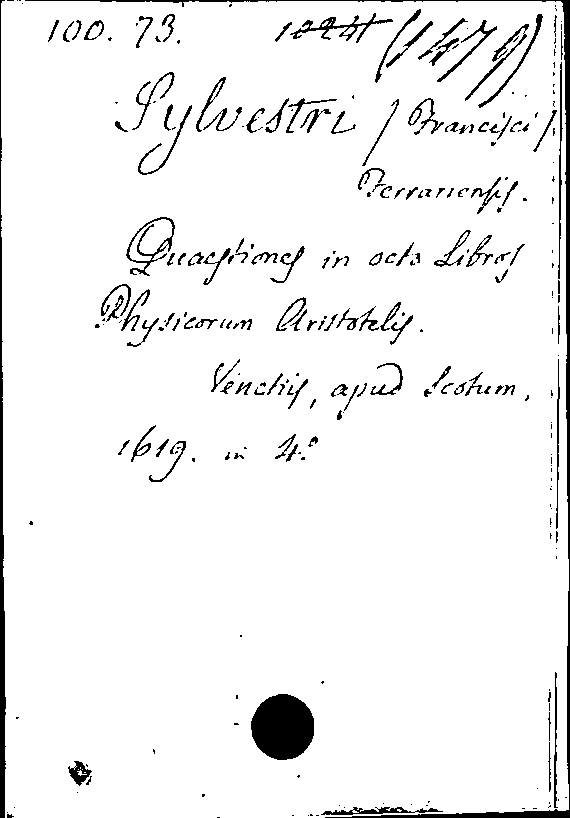 100. 73. 1024 (1479)
Sylvestri / Francisci /
Ferrariensis.
Quaestiones in octo Libros
Physicorum Aristotelis.
Venetiis, apud Scotum,
1619. in 4.º